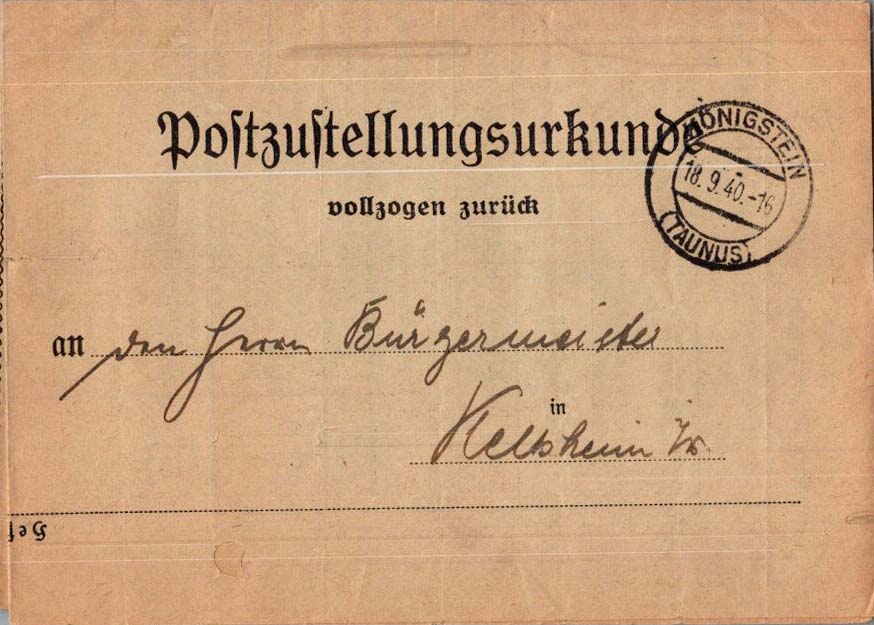 Postzustellungsurkunde
KÖNIGSTEIN
18.9.40.-16
(TAUNUS)
vollzogen zurück
an den Herrn Bürgermeister
in